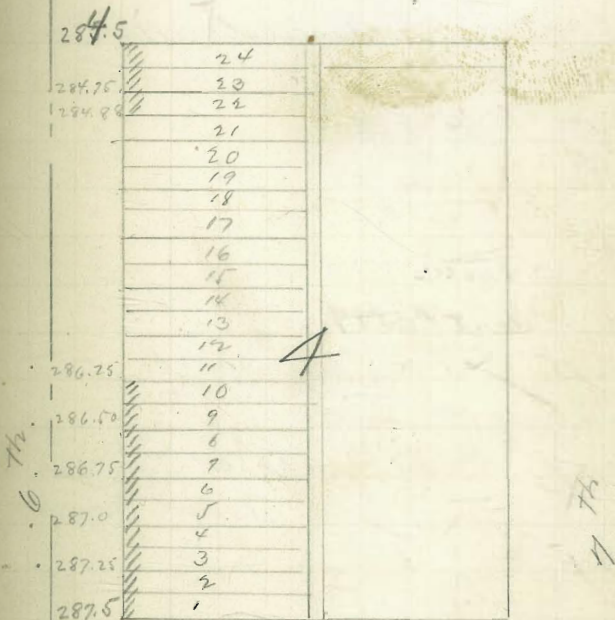 284.5
24
284.75 23
284.88 22
21
20
19
18
17
16
15
14
13
12
4
286.25 11
10
286.50 9
8
286.75 7
6
287.0 5
4
287.25 3
2
287.5 1
6 th.
7 th